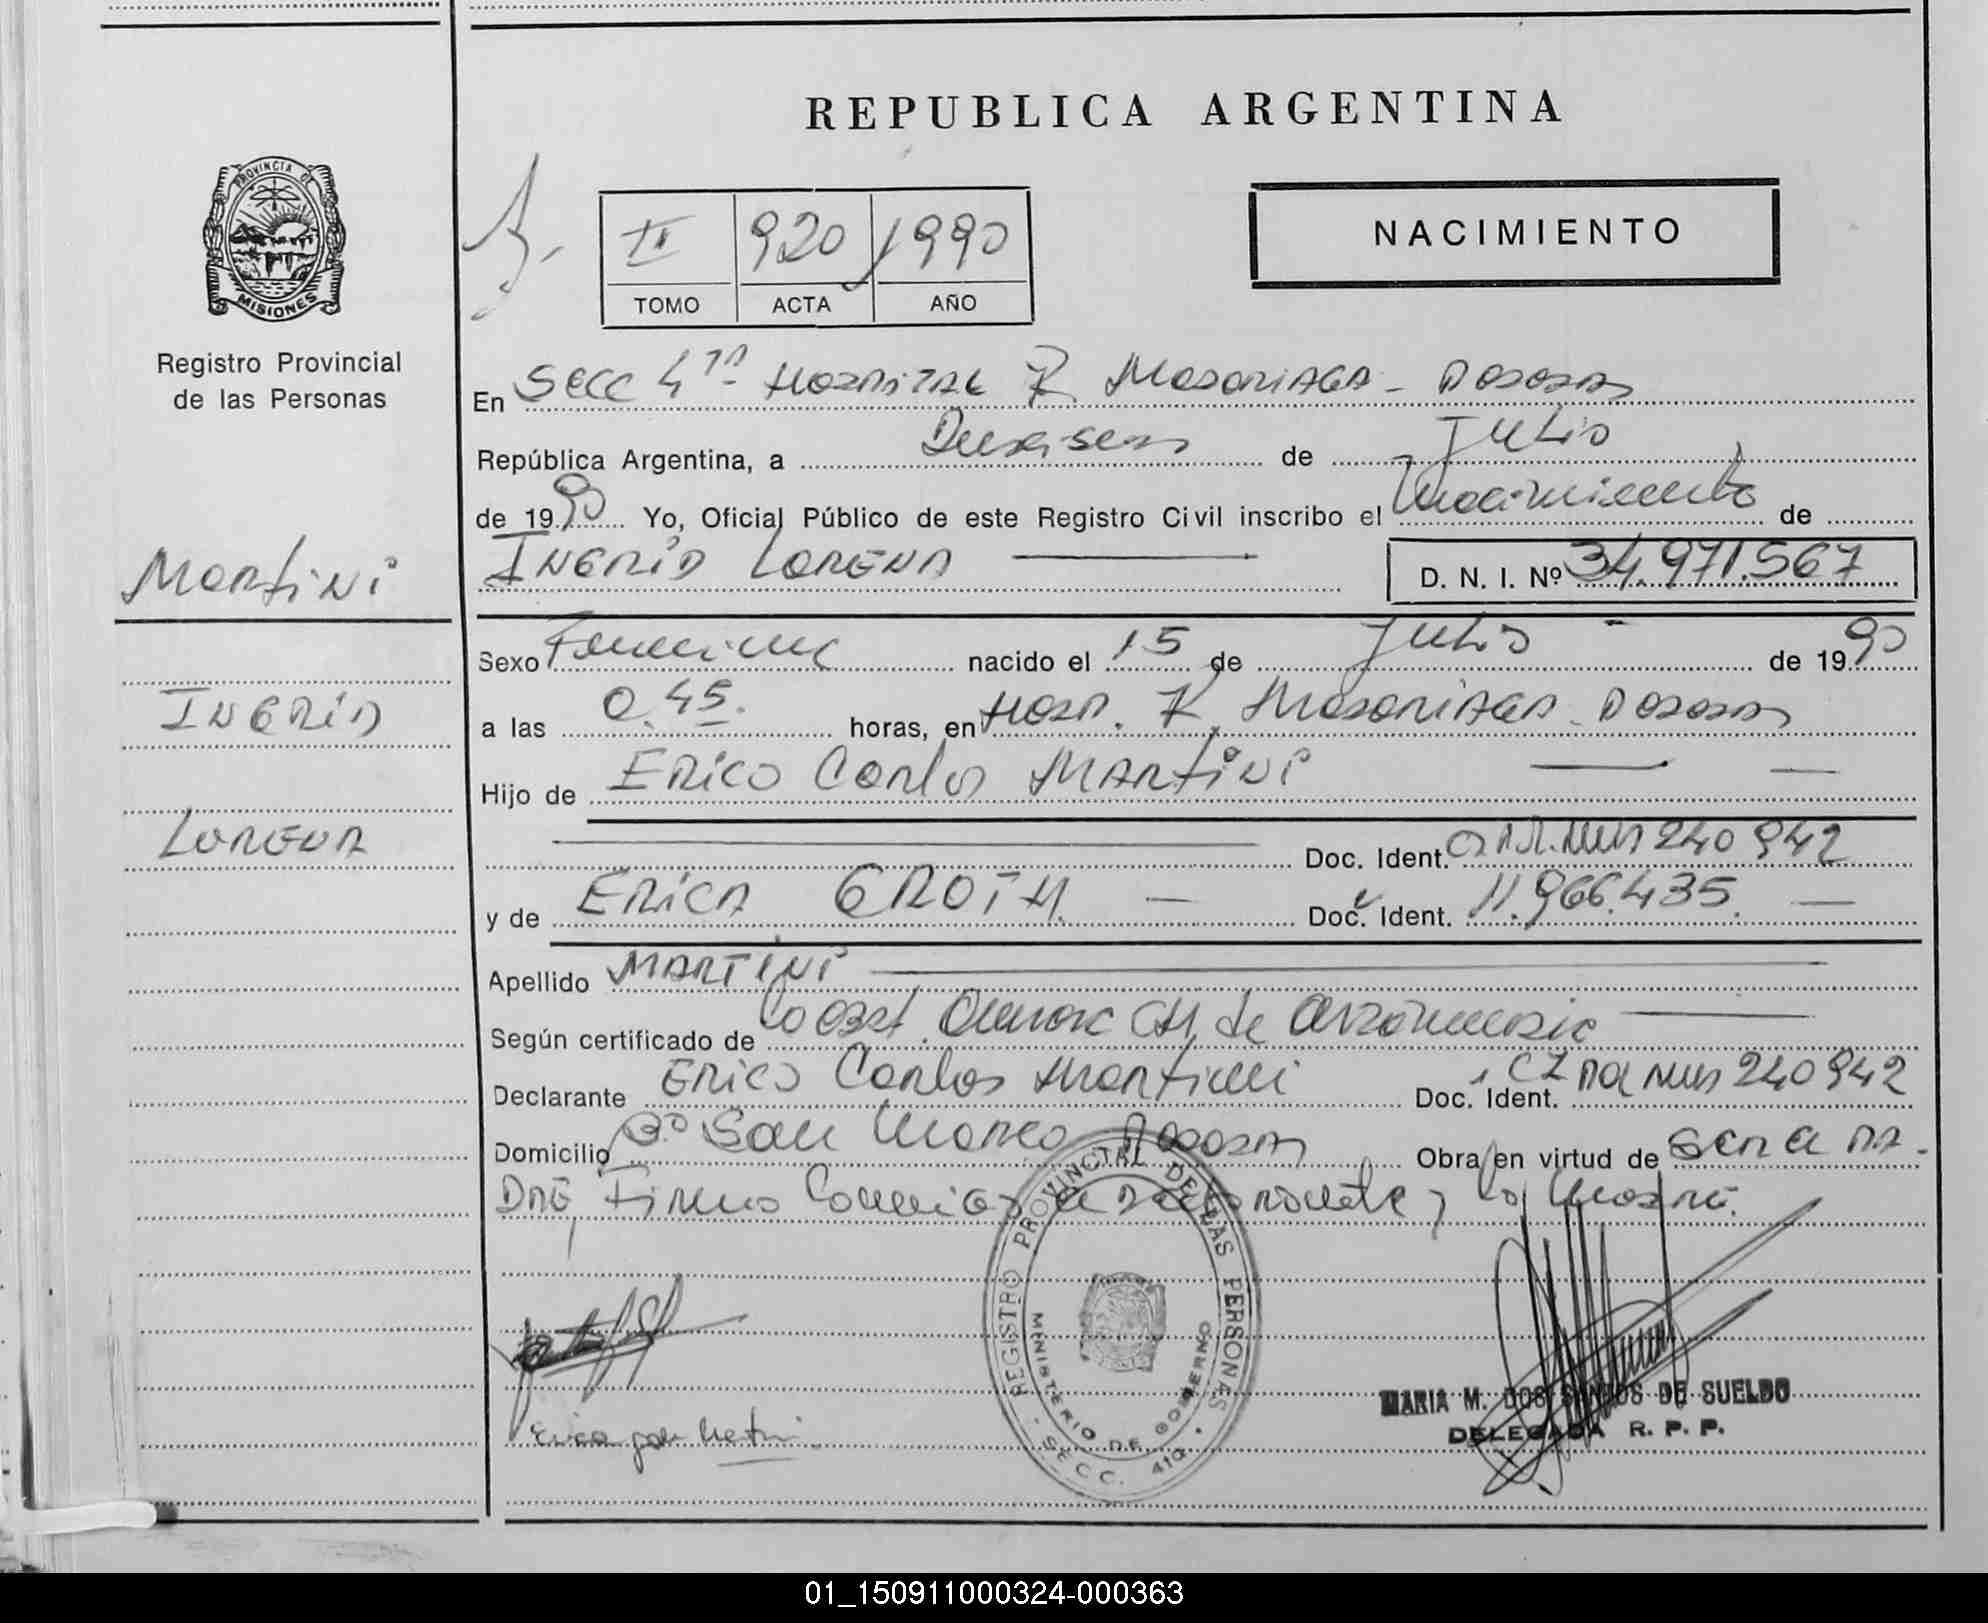 REPUBLICA ARGENTINA
PROVINCIA DE
MISIONES
Registro Provincial
de las Personas
II 920 1990
TOMO ACTA AÑO
NACIMIENTO
En Secc 4ta Hospital R Madariaga - Posadas
República Argentina, a Dieciseis de Julio
de 1990 Yo, Oficial Público de este Registro Civil inscribo el Nacimiento de
INGRID LORENA
D. N. I. Nº 34.971.567
Martini
INGRID
LORENA
Sexo Femenino nacido el 15 de Julio de 1990
a las 0.45. horas, en Hosp. R. Madariaga - Posadas
Hijo de ERICO Carlos MARTINI
Doc. Ident. 240942
y de ERICA GROTH. Doc. Ident. 11.966.435.
Apellido MARTINI
Según certificado de la obst.
Declarante Erico Carlos Martini Doc. Ident. 240942
Domicilio Bº San Marco Posadas Obra en virtud de ser el pa-
dre, Firma Conmigo el declarante y la Madre.
REGISTRO PROVINCIAL DE LAS PERSONAS
MINISTERIO DE GOBIERNO
- SECC. 4ta -
MARIA M. DOS SANTOS DE SUELDO
DELEGADA R. P. P.
01_150911000324-000363